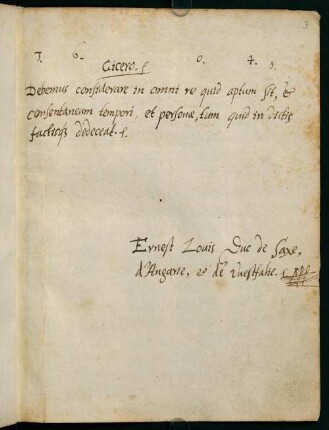 3
J. 6. 0. 4. 5.
Cicero.
Debemus considerare in omni re quid aptum sit, &
consentaneum tempori, et personæ, tum quid in dictis
factisq; dedeceat.
Ernest Louis Duc de Saxe,
d'Angarie, et de Vuestfalie.